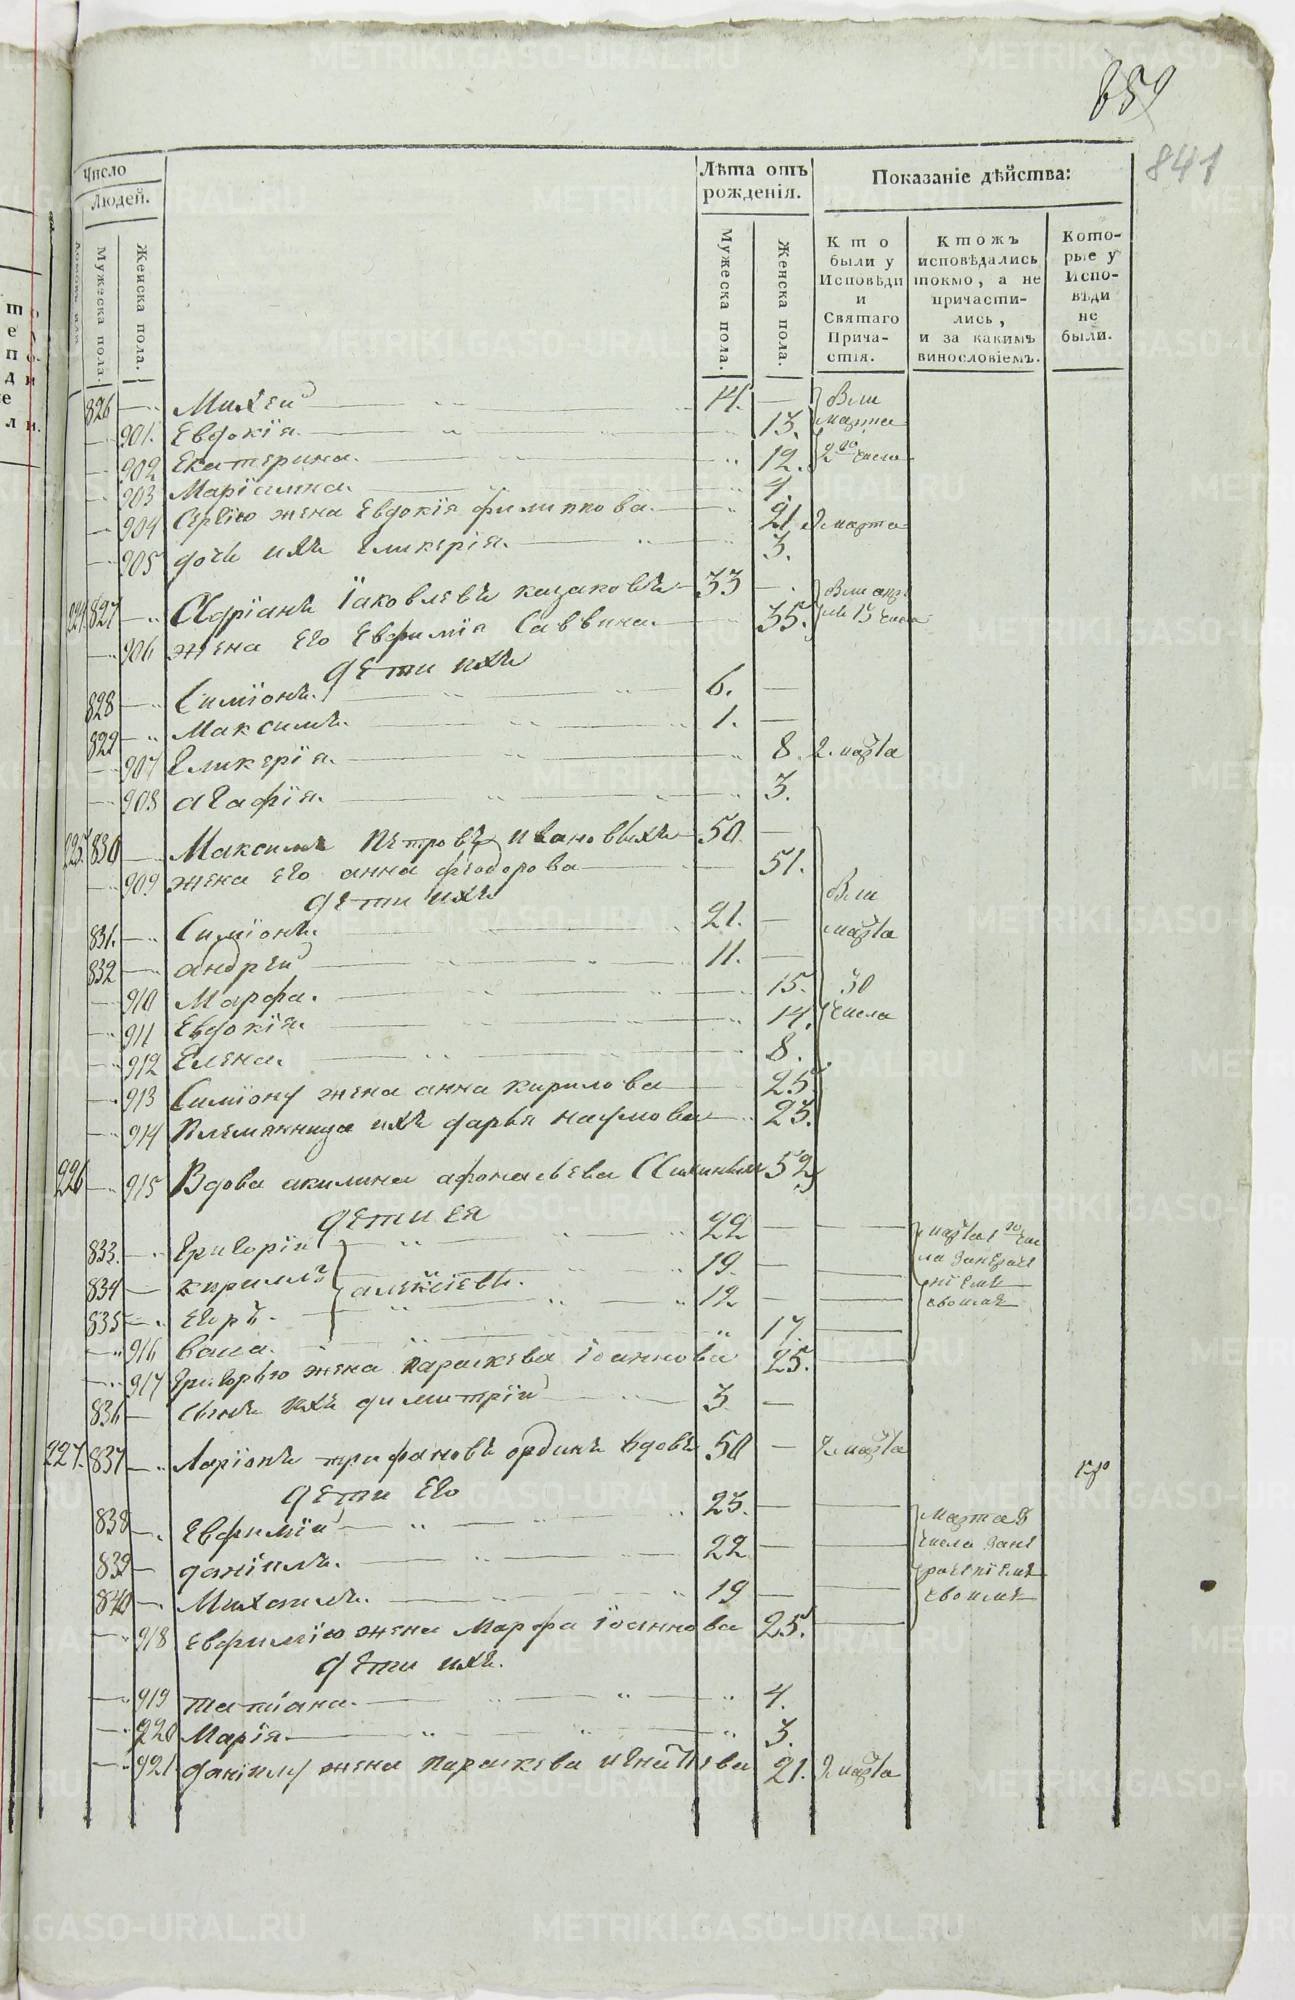 859
841
Число
Людей.
Мужеска пола.
Женска пола.
Лѣта отъ
рожденія.
Мужеска пола.
Женска пола.
Показаніе дѣйства:
Кто
были у
Исповѣди
и
Святаго
Прича-
стія.
Ктожъ
исповѣдались
токмо, а не
причасти-
лись,
и за какимъ
винословіемъ.
Кото-
рые у
Испо-
вѣди
не
были.
826 Михей 14.
901. Евдокія 13.
902 Екатерина. 12.
903 Маріамна. 4.
904 Сергію жена Евдокія филиппова. 21. 2 марта
905 дочь ихъ Гликерія. 3.
224. 827 Адріанъ Іаковлевъ казаковъ 33
906 жена Его Евфимія Саввина. 35.
дети ихъ
828 Симіонъ. 6.
829 Максимъ. 1.
907 Гликерія. 8. 2. марта
908 агафія. 3.
225. 830 Максимъ Петровъ Ивановыхъ 50
909 жена Его анна феодорова 51.
дети ихъ
831. Симіонъ. 21.
832 андрей 11.
910 Марфа. 15.
911 Евдокія. 14.
912 Елена. 8.
913 Симіону жена анна кирилова 25.
914 Племянница ихъ дарья наумова 23.
марта
30
числа
226 915 Вдова акилина афонасьева 52
дети ея
833. Григорій 22
834 кирилъ алексіевы. 19.
835 Егоръ. 12
916 васа. 17.
917 Григорью жена параскева Іоаннова 25.
836 сынъ ихъ димитрій 3
227. 837 Ларіонъ трифановъ ординъ вдовъ 50 2 марта
дети Его
838 Евфимій 23.
839 даніилъ. 22
840 Михаилъ. 19
марта 8
числа
своимъ
918 Евфимію жена Марфа Іоаннова 25.
дети ихъ.
919 татіана. 4.
920 Марія 3.
921 даніилу жена параскева игнатіева 21. 2 марта
METRIKI.GASO-URAL.RU